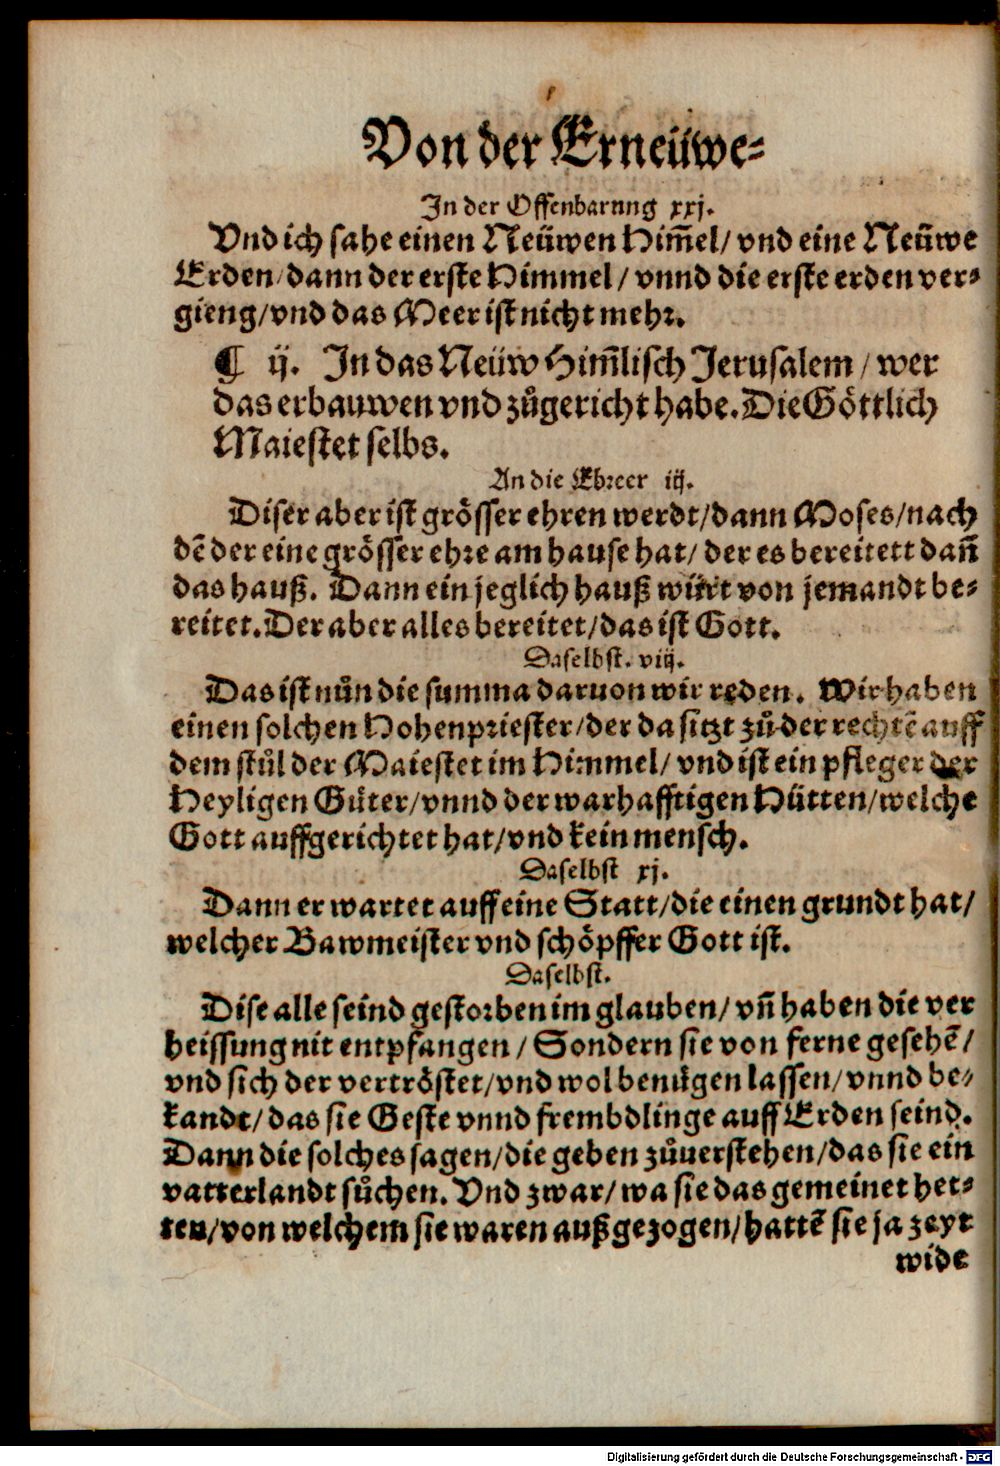 Von der Erneüwe⸗
In der Offenbarung xxj.
Vnd ich sahe einen Neüwen Him̃el/ vnd eine Neüwe
Erden/ dann der erste Himmel/ vnnd die erste erden ver⸗
gieng/ vnd das Meer ist nicht mehr.
¶ ij. In das Neüw Him̃lisch Jerusalem/ wer
das erbauwen vnd zůgericht habe. Die Göttlich
Maiestet selbs.
An die Ebreer iij.
Diser aber ist grösser ehren werdt/ dann Moses/ nach
dẽ der eine grösser ehre am hause hat/ der es bereitett dañ
das hauß. Dann ein jeglich hauß wirt von jemandt be⸗
reitet. Der aber alles bereitet/ das ist Gott.
Daselbst. viij.
Das ist nůn die summa daruon wir reden. Wir haben
einen solchen Hohenpriester/ der da sitzt zů der rechtẽ auff
dem stůl der Maiestet im Himmel/ vnd ist ein pfleger der
Heyligen Güter/ vnnd der warhafftigen Hütten/ welche
Gott auffgerichtet hat/ vnd kein mensch.
Daselbst xj.
Dann er wartet auff eine Statt/ die einen grundt hat/
welcher Bawmeister vnd schöpffer Gott ist.
Daselbst.
Dise alle seind gestorben im glauben/ vñ haben die ver
heissung nit entpfangen/ Sondern sie von ferne gesehẽ/
vnd sich der vertröstet/ vnd wol benügen lassen/ vnnd be⸗
kandt/ das sie Geste vnnd frembdlinge auff Erden seind.
Dann die solches sagen/ die geben zůuerstehen/ das sie ein
vatterlandt sůchen. Vnd zwar/ wa sie das gemeinet het⸗
ten/ von welchem sie waren außgezogen/ hattẽ sie ja zeyt
wide
Digitalisierung gefördert durch die Deutsche Forschungsgemeinschaft - DFG